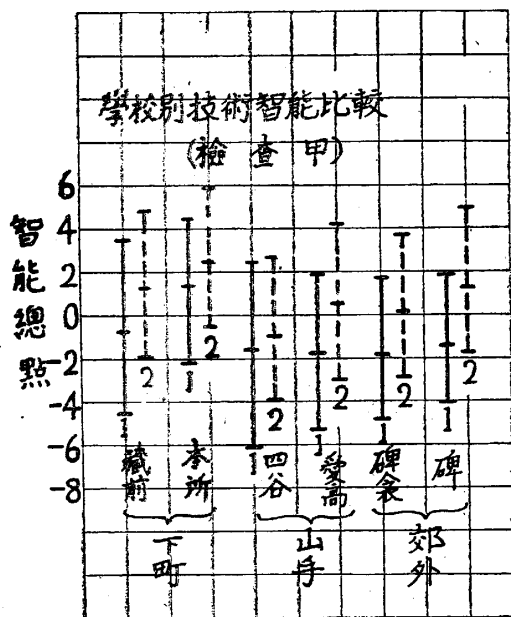 學校別技術智能比較
(檢查甲)
智能總點
6
4
2
0
-2
-4
-6
-8
1 2 1 2 1 2 1 2 1 2 1 2
藏前 本所 四谷 愛高 碑衾 碑
下町 山手 郊外